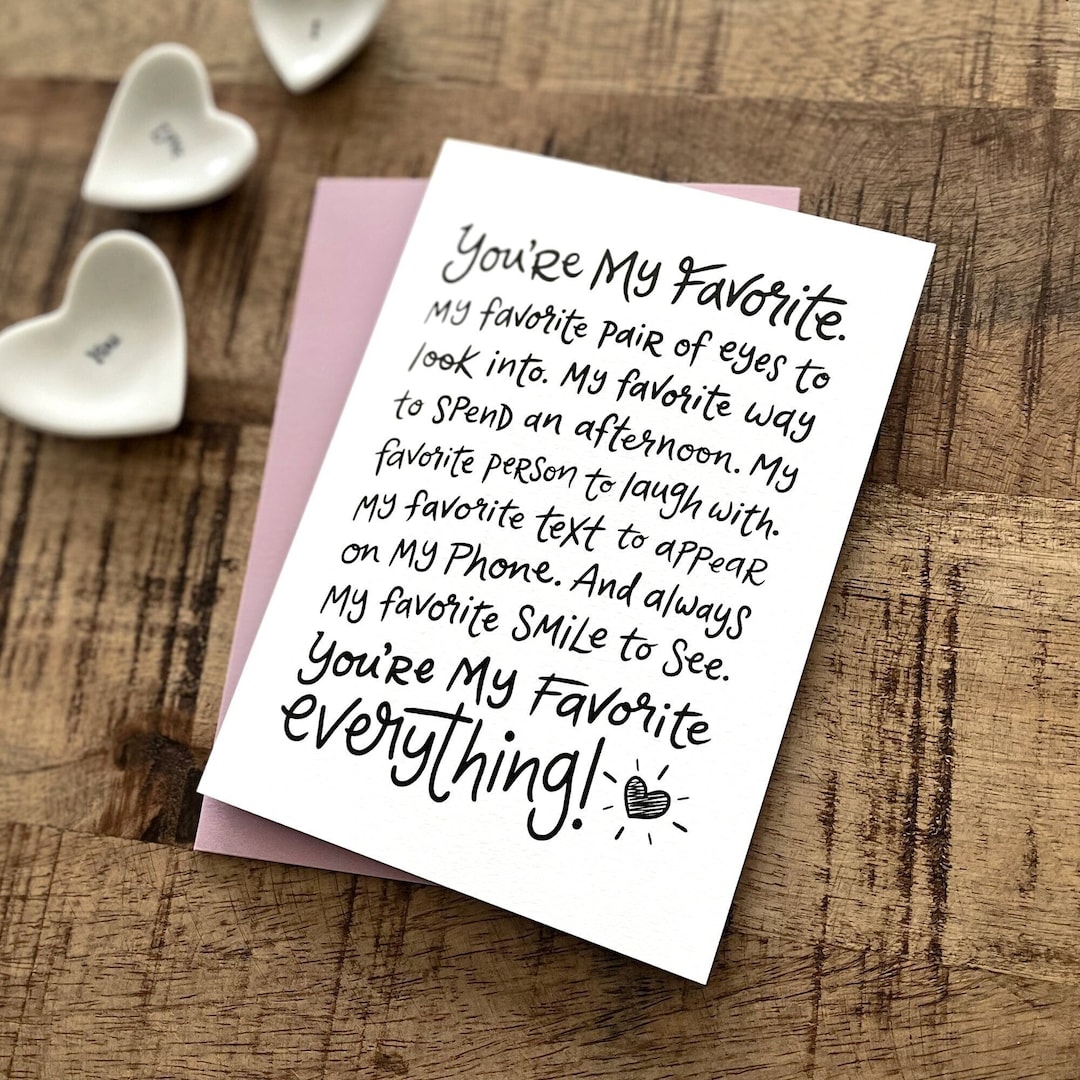 I
love
you
You're My Favorite.
My favorite pair of eyes to
look into. My favorite way
to spend an afternoon. My
favorite person to laugh with.
My favorite text to appear
on My Phone. And always
My favorite smile to see.
You're My Favorite
everything!